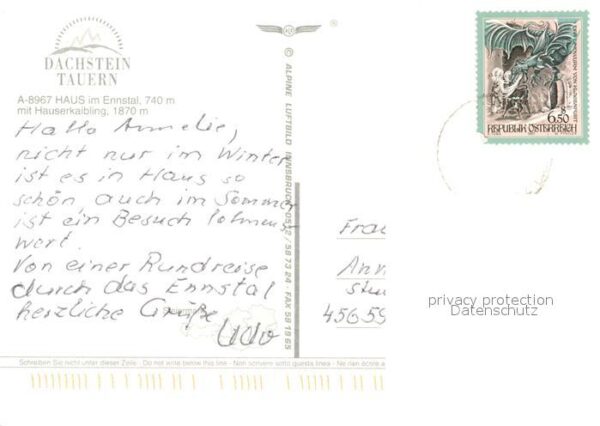 DACHSTEIN
TAUERN
A-8967 HAUS im Ennstal, 740 m
mit Hauserkaibling, 1870 m
Hallo Annelie,
nicht nur im Winter
ist es in Haus so
schön, auch im Sommer
ist ein Besuch lohnens-
wert.
Von einer Rundreise
durch das Ennstal
herzliche Grüße
Udo
Schreiben Sie nicht unter dieser Zeile · Do not write below this line · Non scrivere sotto questa linea · Ne rien écrire a
© ALPINE LUFTBILD INNSBRUCK 0512 / 58 73 24 · FAX 58 18 65
6.50
REPUBLIK ÖSTERREICH
Frau
Ann
45659
privacy protection
Datenschutz